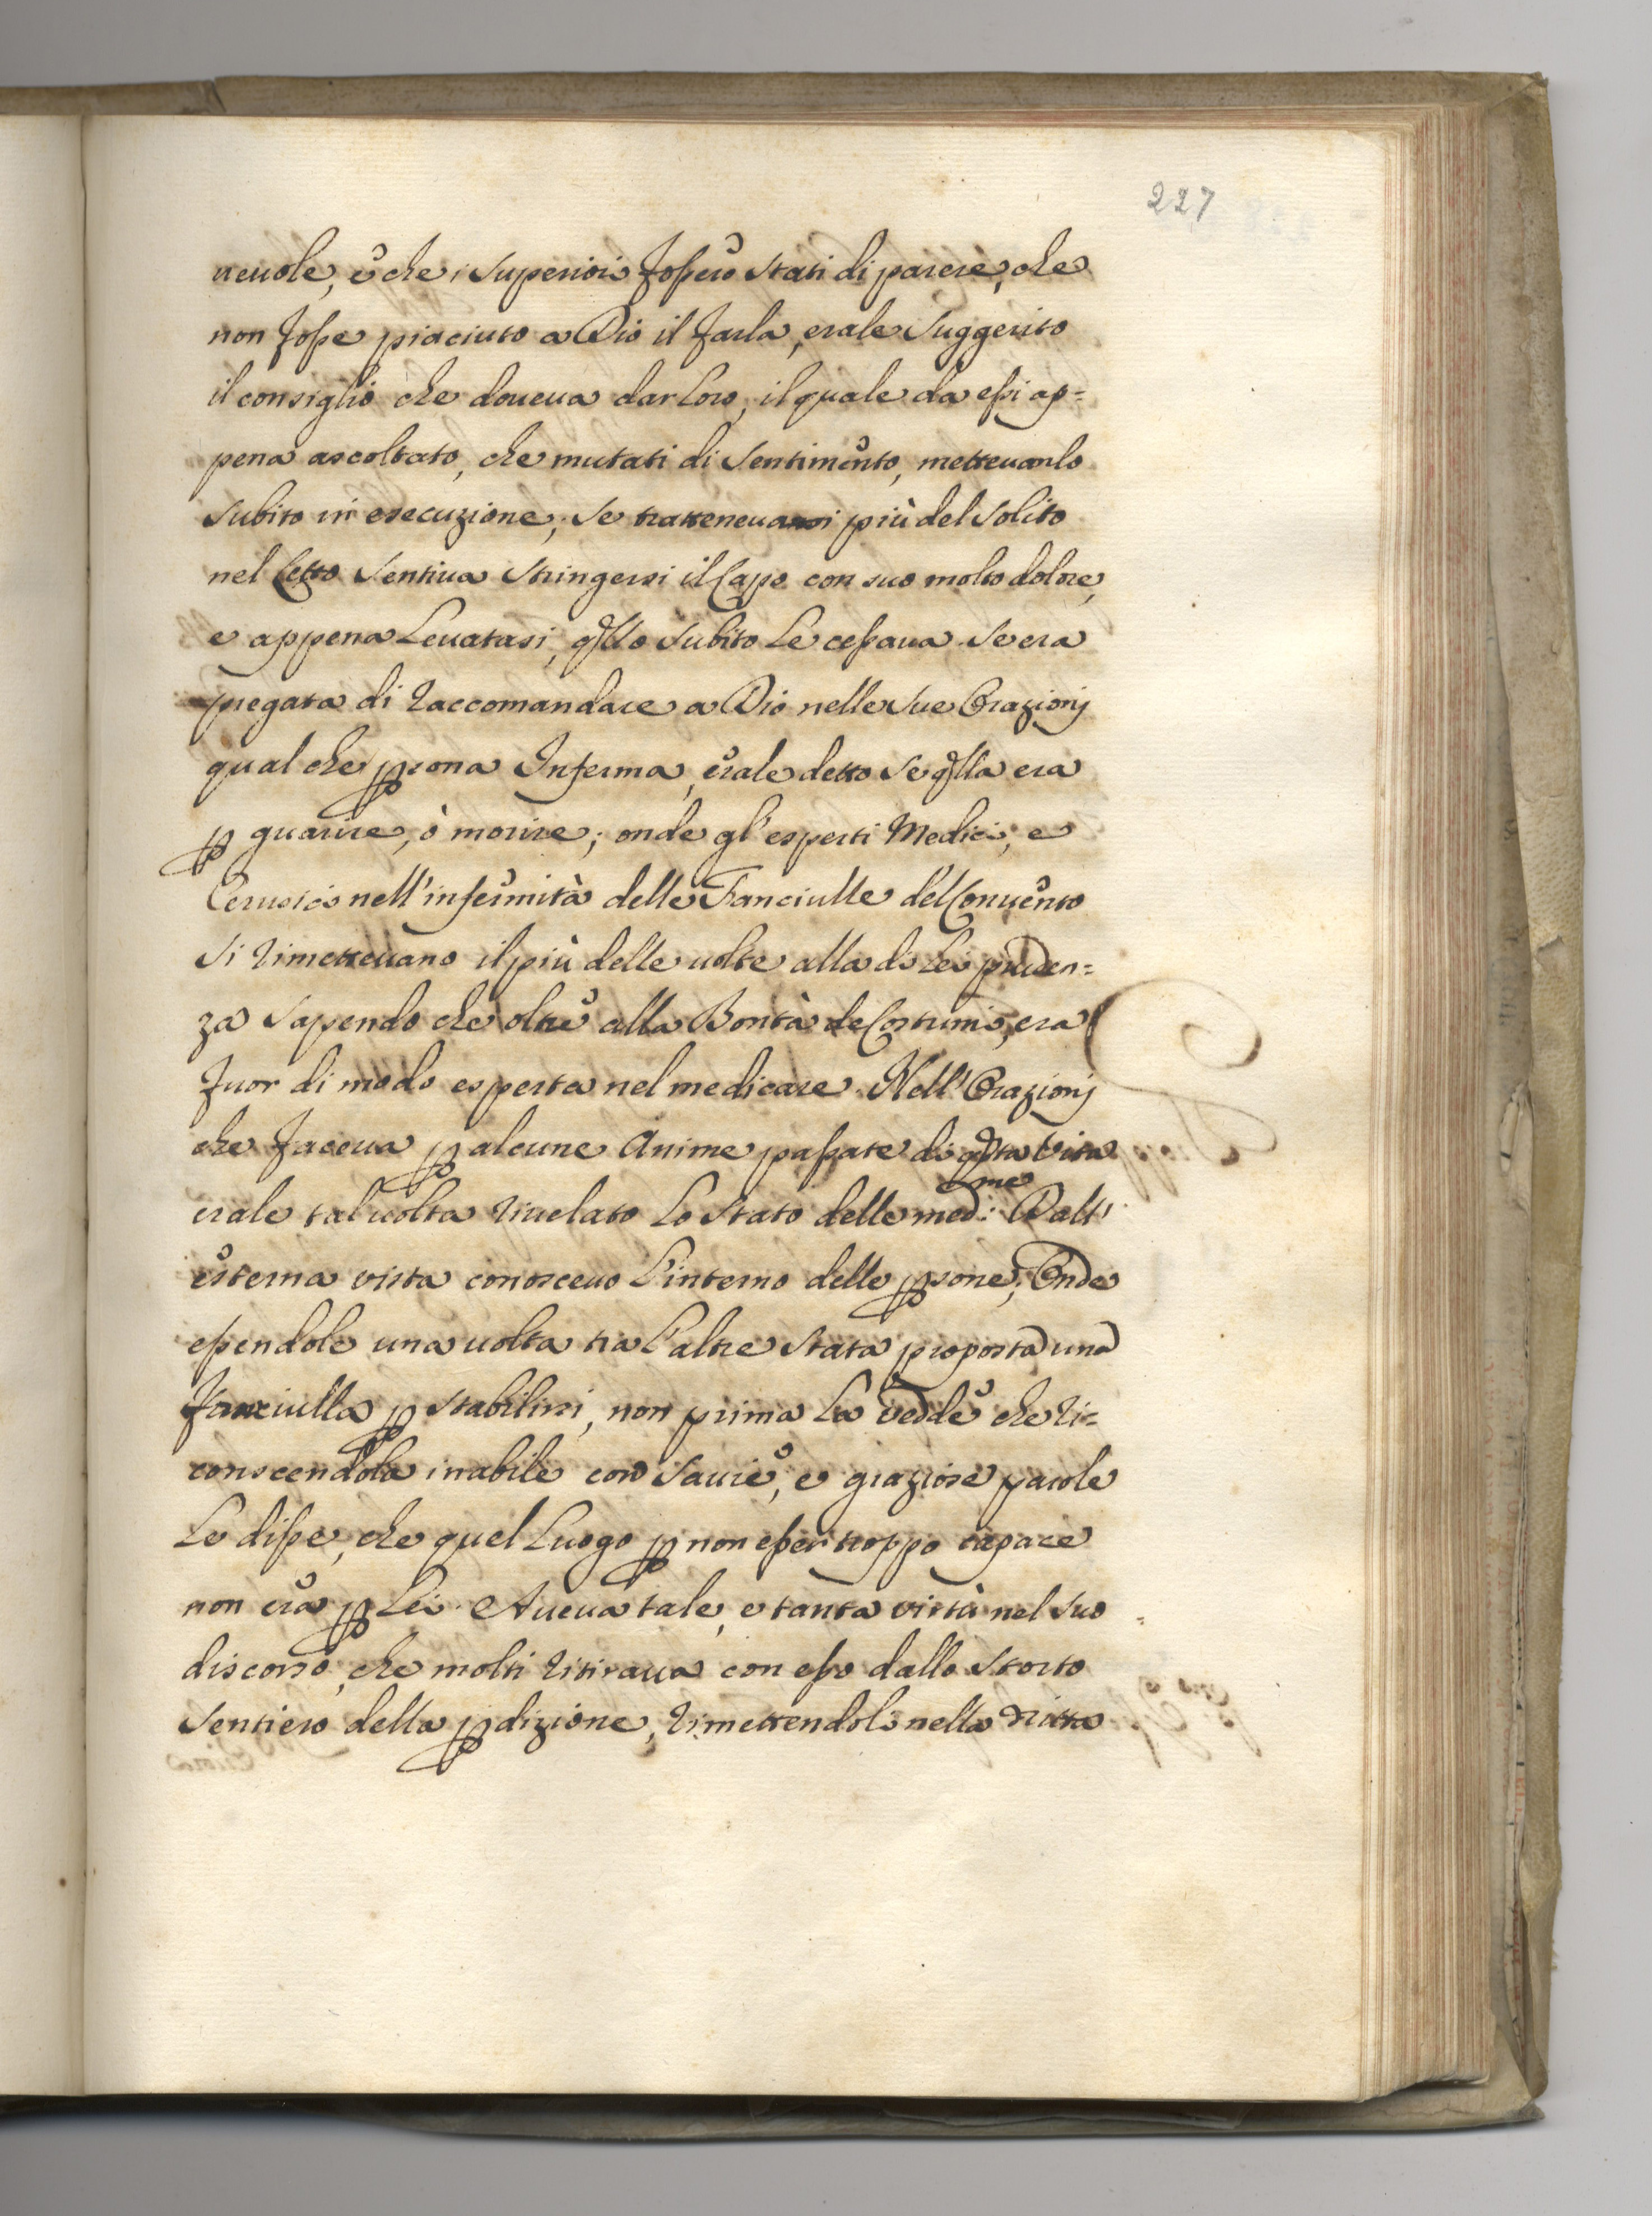 227
neuole, è che i Superiori foßero stati di parere, che
non foße piaciuto a Dio il farla, erale suggerito
il consiglio che doueua dar Loro, il quale da eßi ap=
pena ascoltato, che mutati di sentimento, metteuanlo
subito in esecuzione; se tratteneuasi più del solito
nel Letto sentiua stringersi il Capo con suo molto dolore,
e appena Leuatasi, qllo subito Le ceßaua. Se era
pregata di raccomandare a Dio nelle sue Orazionj
qual che psona Inferma, erale detto se qlla era
p guarire, ò morire; onde gl'esperti Medici, e
Cerusici nell'infermità delle Fanciulle del Conuento
si rimetteuano il più delle uolte alla di Lei pruden=
za sapendo che oltre alla Bontà de Costumi, era
fuor di modo esperta nel medicare. Nell'Orazionj
che faceua p alcune Anime paßate di qsta Vita
erale tal uolta riuelato Lo stato delle med.me Dall'
esterna vista conosceuo L'interno delle psone; Onde
eßendole una uolta tra L'altre stata proposta una
fanciulla p stabilirsi, non prima La vedde che ri=
conscendola inabile con sauie, e graziose parole
Le diße, che quel Luogo p non eßer troppo capace
non era p Lei. Aueua tale, e tanta virtù nel suo
discorso, che molti ritiraua con eßo dallo storto
sentiero della pdizione, rimettendoli nella dritta